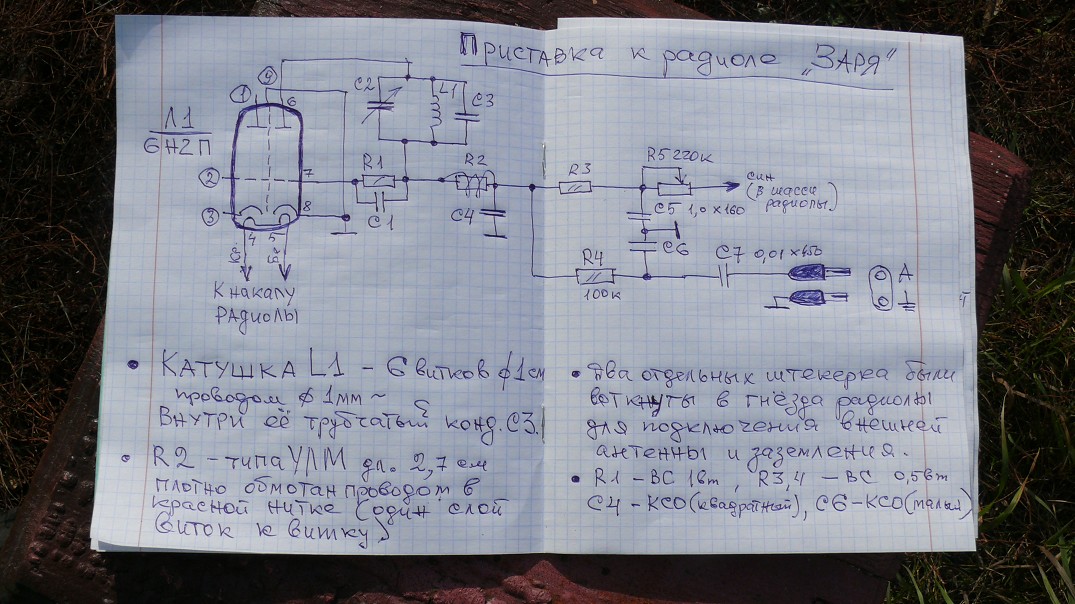 Приставка к радиоле „ЗАРЯ"
Л1
6Н2П
1
9
6
2
7
3
8
4
5
К накалу
РАДИОЛЫ
С2
L1
С3
R1
С1
R2
С4
R3
R5 220к
син
(в шасси
радиолы.)
С5 1,0 х 160
С6
R4
100к
С7 0,01 х 450
А
КАТУШКА L1 – 6 витков ϕ1см
проводом ϕ 1мм ~
ВНУТРИ её трубчатый конд. С3.
R2 – типа УЛМ дл. 2,7 см
плотно обмотан проводом в
красной нитке (один слой
виток к витку)
два отдельных штекерка были
воткнуты в гнёзда радиолы
для подключения внешней
антенны и заземления.
R1 – ВС 1вт, R3,4 – ВС 0,5вт
С4 – КСО(квадратный), С6 – КСО(малый)